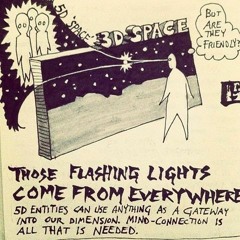 5D SPACE
3D SPACE
BUT
ARE THEY
FRIENDLY?
THOSE FLASHING LIGHTS
COME FROM EVERYWHERE
5D ENTITIES CAN USE ANYTHING AS A GATEWAY
INTO OUR DIMENSION. MIND-CONNECTION IS
ALL THAT IS NEEDED.